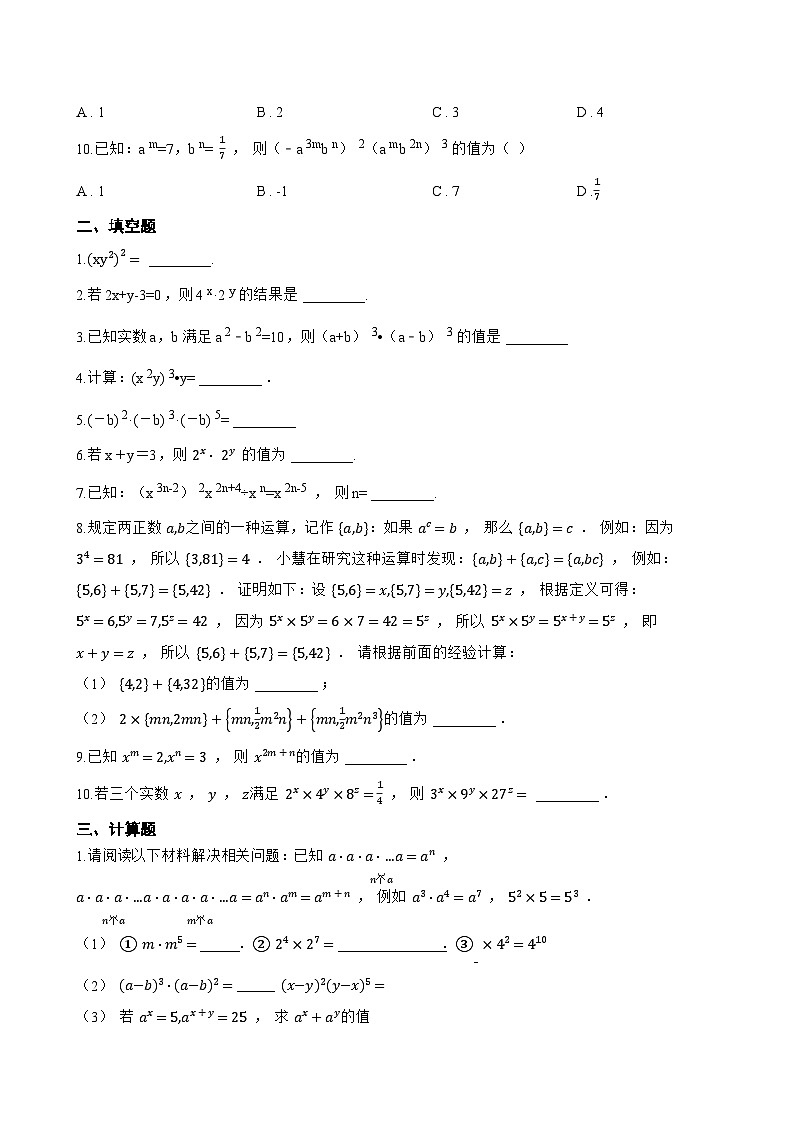 A . 1 B . 2 C . 3 D . 4
10.已知：a ᵐ=7，b ⁿ= 1/7 ， 则（﹣a ³ᵐb ⁿ） ²（a ᵐb ²ⁿ） ³ 的值为（ ）
A . 1 B . -1 C . 7 D . 1/7
二、填空题
1.(xy²)² = ________.
2.若 2x+y-3=0，则 4 ˣ·2 ʸ 的结果是 ________.
3.已知实数 a，b 满足 a ²﹣b ²=10，则（a+b） ³•（a﹣b） ³ 的值是 ________
4.计算：(x ²y) ³•y= ________ .
5.(－b) ²·(－b) ³·(－b) ⁵= ________
6.若 x＋y＝3，则 2ˣ · 2ʸ 的值为 ________.
7.已知：（x ³ⁿ⁻²） ²x ²ⁿ⁺⁴÷x ⁿ=x ²ⁿ⁻⁵ ， 则 n= ________.
8.规定两正数 a,b之间的一种运算，记作 {a,b}：如果 aᶜ = b ， 那么 {a,b} = c ． 例如：因为
3⁴ = 81 ， 所以 {3,81} = 4 ． 小慧在研究这种运算时发现：{a,b} + {a,c} = {a,bc} ， 例如：
{5,6} + {5,7} = {5,42} ． 证明如下：设 {5,6} = x,{5,7} = y,{5,42} = z ， 根据定义可得：
5ˣ = 6,5ʸ = 7,5ᶻ = 42 ， 因为 5ˣ × 5ʸ = 6 × 7 = 42 = 5ᶻ ， 所以 5ˣ × 5ʸ = 5ˣ⁺ʸ = 5ᶻ ， 即
x + y = z ， 所以 {5,6} + {5,7} = {5,42} ． 请根据前面的经验计算：
（1） {4,2} + {4,32}的值为 ________；
（2） 2 × {mn,2mn} + {mn,1/2 m²n} + {mn,1/2 m²n³}的值为 ________．
9.已知 xᵐ = 2,xⁿ = 3 ， 则 x²ᵐ⁺ⁿ的值为 ________．
10.若三个实数 x ， y ， z满足 2ˣ × 4ʸ × 8ᶻ = 1/4 ， 则 3ˣ × 9ʸ × 27ᶻ = ________．
三、计算题
1.请阅读以下材料解决相关问题：已知 a · a · a · …a = aⁿ ，
n个a
a · a · a · …a · a · a · a · …a = aⁿ · aᵐ = aᵐ⁺ⁿ ， 例如 a³ · a⁴ = a⁷ ， 5² × 5 = 5³ ．
n个a m个a
（1） ① m · m⁵ = _____. ② 2⁴ × 2⁷ = ______________. ③ _ × 4² = 4¹⁰
（2） (a−b)³ · (a−b)² = _____ (x−y)²(y−x)⁵ =
（3） 若 aˣ = 5,aˣ⁺ʸ = 25 ， 求 aˣ + aʸ的值